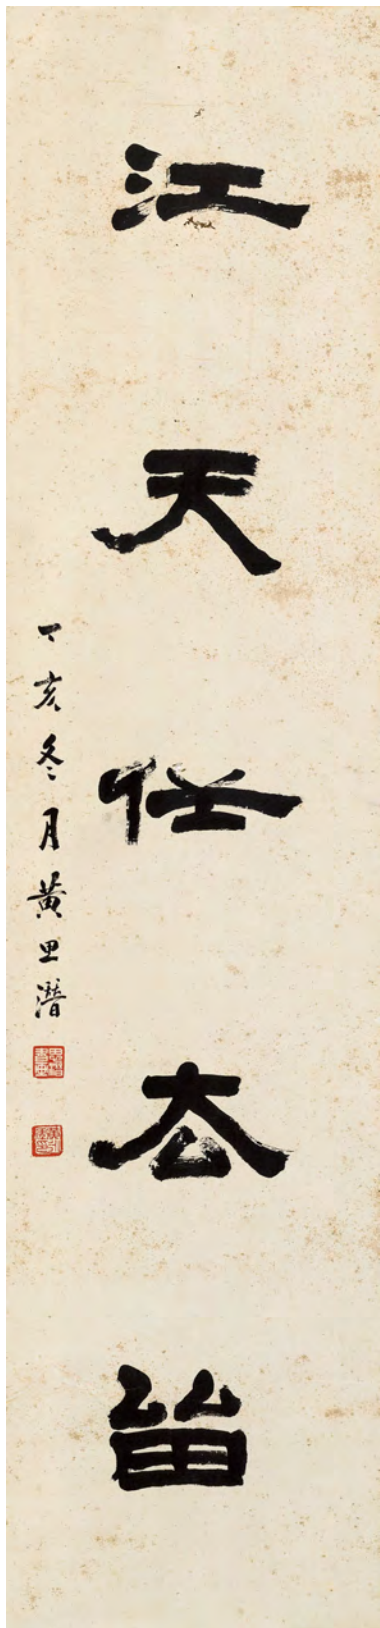 江天任去留
丁亥冬月黃思潛